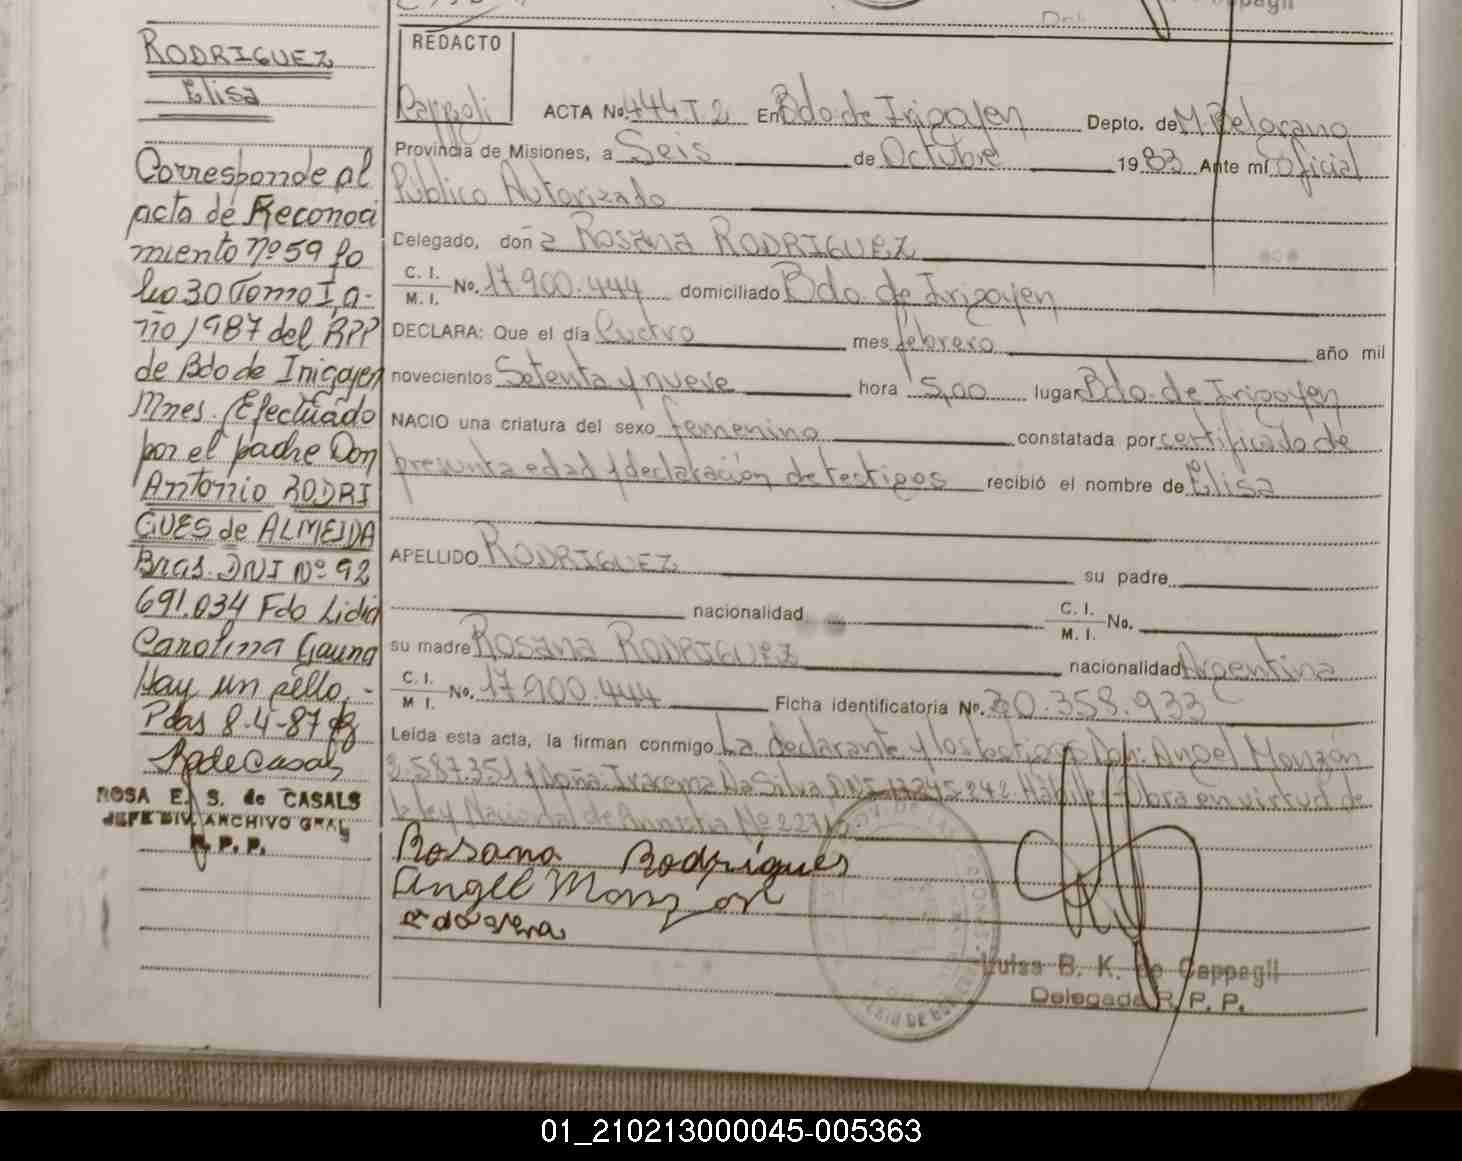 RODRIGUEZ
Elisa
Corresponde al
acta de Reconoci
miento nº 59 fo
lio 30 Tomo I, a-
ño 1987 del RPP
de Bdo de Irigoyen
Mnes. Efectuado
por el padre Don
Antonio RODRI
GUES de ALMEIDA
Bras. DNI Nº 92
691.034 Fdo Lidia
Carolina Gauna
Hay un sello.-
Pdas 8-4-87
R de Casals
ROSA E. S. de CASALS
JEFE DIV. ARCHIVO GRAL
R. P. P.
REDACTO
Cappagli
ACTA No. 444 T 2 En Bdo. de Irigoyen Depto. de M. Belgrano
Provincia de Misiones, a Seis de Octubre 1983 Ante mí Oficial
Público Autorizado
Delegado, doña Rosana RODRIGUEZ
C. I.
M. I. No. 17.900.444 domiciliado Bdo. de Irigoyen
DECLARA: Que el día Cuatro mes febrero año mil
novecientos Setenta y nueve hora 5,00 lugar Bdo. de Irigoyen
NACIO una criatura del sexo femenino constatada por certificado de
presunta edad y declaración de testigos recibió el nombre de Elisa
APELLIDO RODRIGUEZ su padre
nacionalidad C. I.
M. I. No.
su madre Rosana RODRIGUEZ nacionalidad Argentina
C. I.
M I. No. 17.900.444 Ficha identificatoria Nº. 30.358.933
Leída esta acta, la firman conmigo La declarante y los testigos Don: Angel Monzón
y Doña: Iracema Da Silva Hábiles - Obra en virtud de
la ley Nacional de Amnistía Nº
Rosana Rodrígues
Angel Monzon
Luisa B. K. de Cappagli
Delegada R. P. P.
01_210213000045-005363